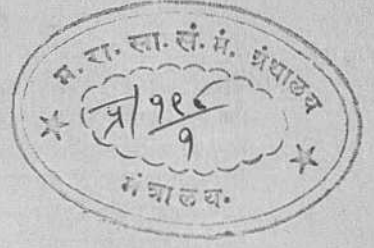 म. रा. सा. सं. मं. ग्रंथालय
प्रा/१९८
१
मंत्रालय.